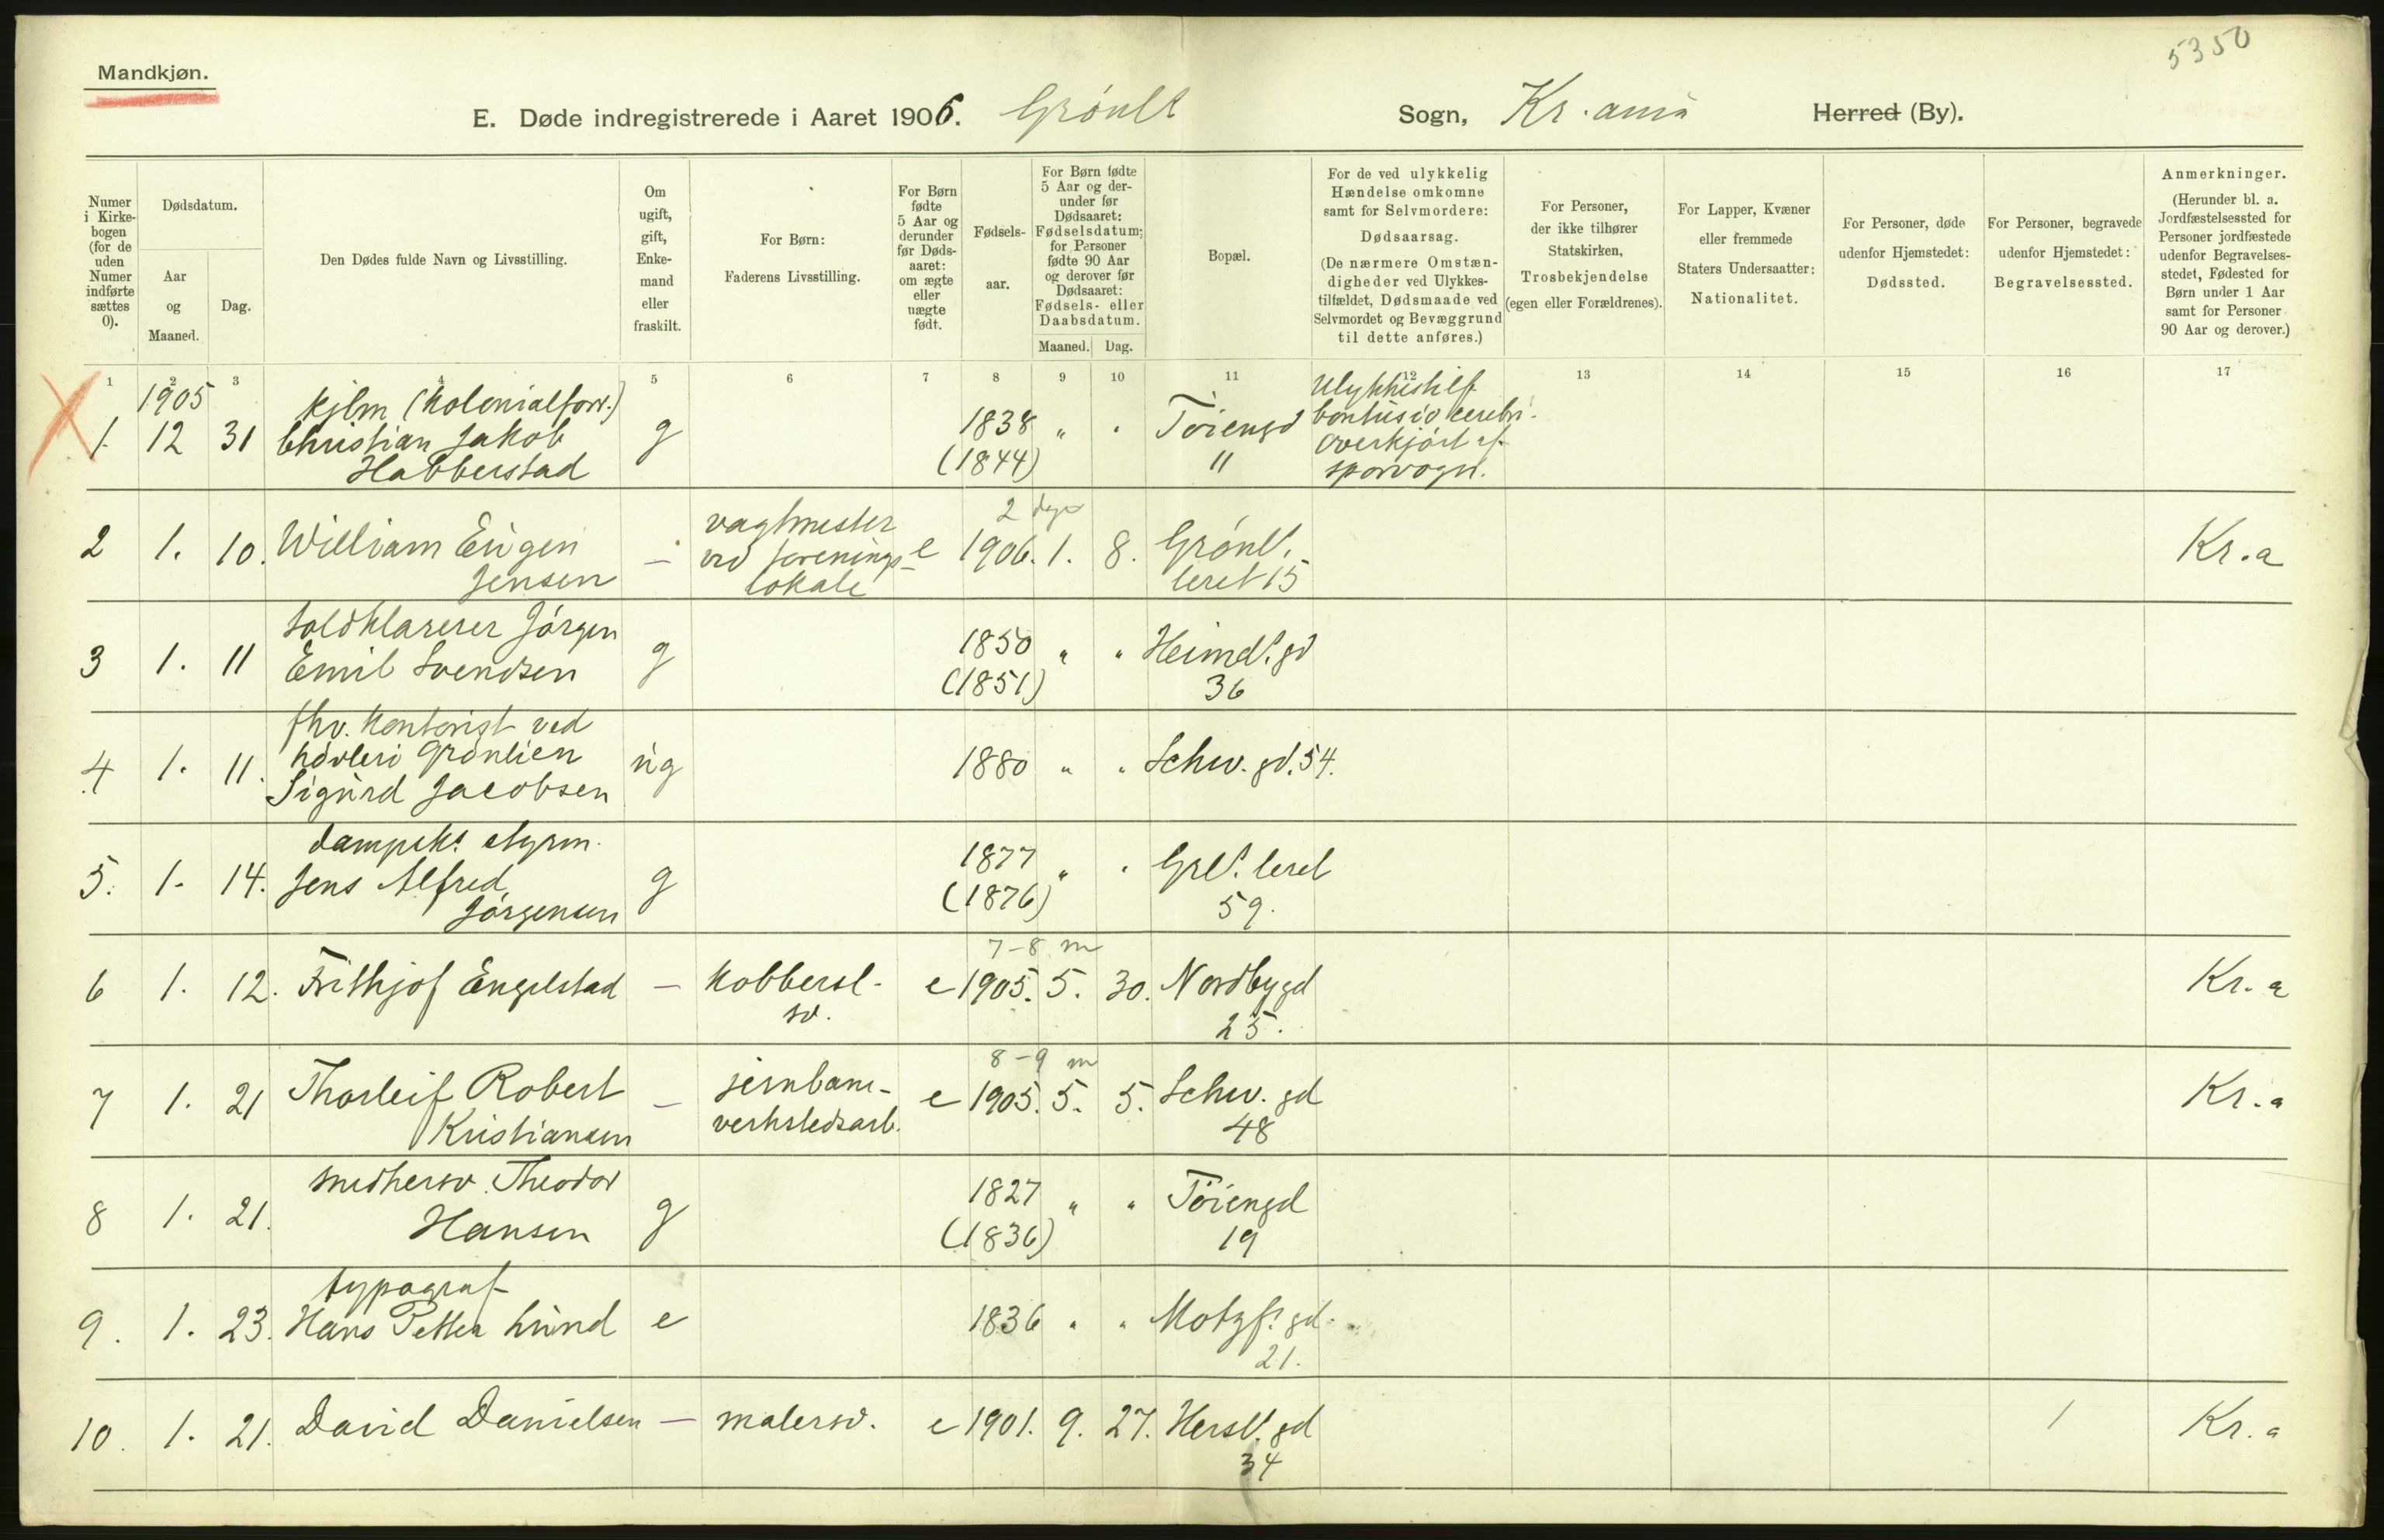 5350
Mandkjøn.
E. Døde indregistrerede i Aaret 1906. Grønl. Sogn, Kr.ania Herred (By).
Numer i Kirkebogen (for de uden Numer indførte sættes 0).
Dødsdatum.
Aar og Maaned.
Dag.
Den Dødes fulde Navn og Livsstilling.
Om ugift, gift, Enkemand eller fraskilt.
For Børn: Faderens Livsstilling.
For Børn fødte 5 Aar og derunder før Dødsaaret: om ægte eller uægte født.
Fødselsaar.
For Børn fødte 5 Aar og derunder før Dødsaaret: Fødselsdatum; for Personer fødte 90 Aar og derover før Dødsaaret: Fødsels- eller Daabsdatum.
Maaned. Dag.
Bopæl.
For de ved ulykkelig Hændelse omkomne samt for Selvmordere: Dødsaarsag. (De nærmere Omstændigheder ved Ulykkestilfældet, Dødsmaade ved Selvmordet og Bevæggrund til dette anføres.)
For Personer, der ikke tilhører Statskirken, Trosbekjendelse (egen eller Forældrenes).
For Lapper, Kvæner eller fremmede Staters Undersaatter: Nationalitet.
For Personer, døde udenfor Hjemstedet: Dødssted.
For Personer, begravede udenfor Hjemstedet: Begravelsessted.
Anmerkninger. (Herunder bl. a. Jordfæstelsessted for Personer jordfæstede udenfor Begravelsesstedet, Fødested for Børn under 1 Aar samt for Personer 90 Aar og derover.)
1 2 3 4 5 6 7 8 9 10 11 12 13 14 15 16 17
1905 kjbm (Kolonialforr.) Ulykkestilf.
1. 12 31 Christian Jakob g 1838 " " Töiengd Contusio cerebri.
Habberstad (1844) 11 overkjørt af
sporvogn.
vagtmester 2 dage
2 1. 10. William Eugen — ved forenings- e 1906. 1. 8. Grønl.
Jensen lokale leret 15 Kr.a
toldklarerer Jørgen
3 1. 11 Emil Svendsen g 1850 " " Heimd. gd
(1851) 36
fhv. kontorist ved
4 1. 11. høvleri Grønlien ug 1880 " " Schw. gd. 54.
Sigurd Jacobsen
dampsk. styrm.
5. 1. 14. Jens Alfred g 1877 " " Grl. leret
Jørgensen (1876) 59.
7-8 m
6 1. 12. Frithjof Engelstad — Kobbersl- e 1905. 5. 30. Nordbygd Kr.a
sv. 25.
8-9 m
7 1. 21 Thorleif Robert — jernbane- e 1905. 5. 5. Schw. gd Kr.a
Kristiansen verkstedsarb. 48
snedkersv. Theodor
8 1. 21. Hansen g 1827 " " Töiengd
(1836) 19
typograf
9. 1. 23. Hans Petter Lund e 1836 " " Motzf. gd.
21.
10. 1. 21. David Danielsen — malersv. e 1901. 9. 27. Hersl. gd 1 Kr.a
34